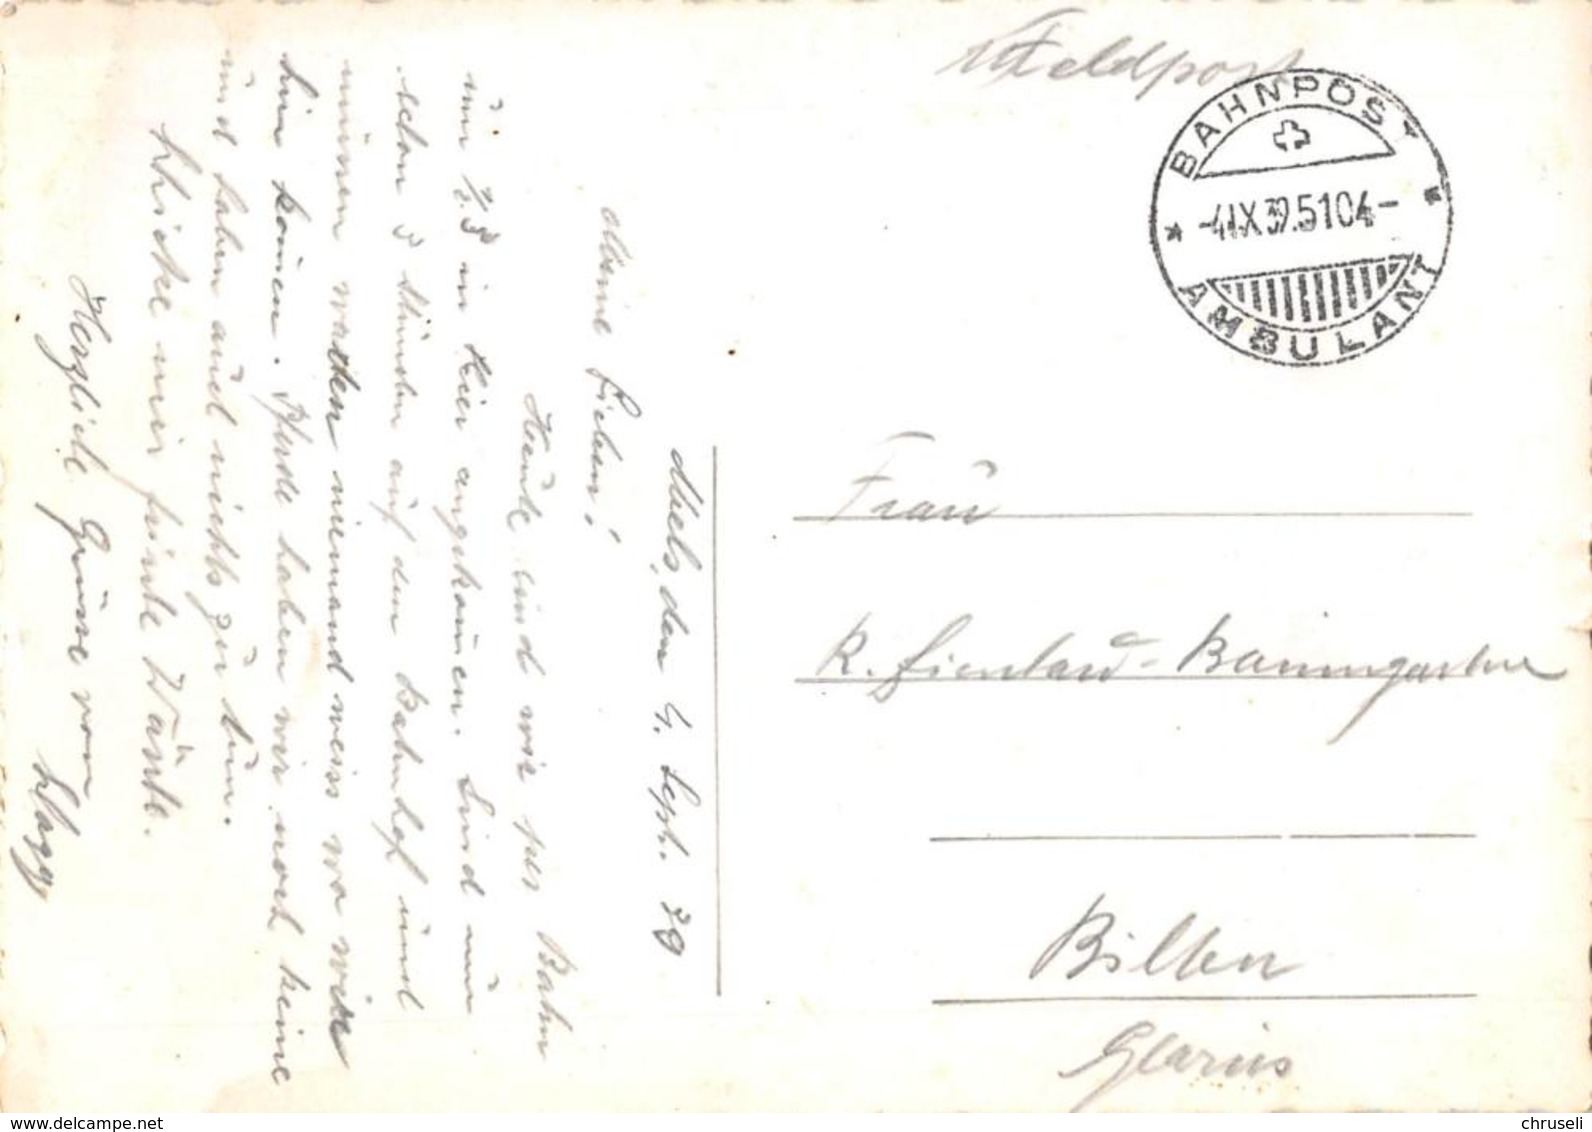 Feldpost
BAHNPOST
-4.IX.39.5104-
AMBULANT
Mels, den 4. Sept. 39
Meine Lieben!
Heute sind wir per Bahn
um ½5 in hier angekommen. Sind nun
schon 5 Stunden auf dem Bahnhof und
müssen warten niemand weiss wo wir
hin kommen. Pferde haben wir noch keine
und haben auch nichts zu tun.
Schicke mir keine Wäsche.
Herzliche Grüsse von
Frau
R. Lienhard-Baumgartner
Bilten
Glarus
© www.delcampe.net
chruseli